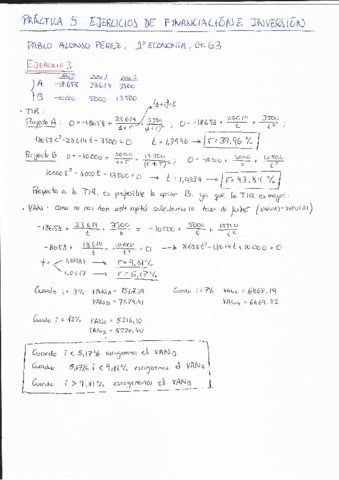 PRÁCTICA 5 EJERCICIOS DE FINANCIACIÓN E INVERSIÓN
PABLO ALONSO PÉREZ, 1º ECONOMÍA, Gr. 63
EJERCICIO 3
A -18658 23614 3500
B -10000 5000 13500
• TIR:
Proyecto A: 0=-18658+ 23614/1+r + 3500/(1+r)²; 0=-18658+ 23614/t + 3500/t²
18658t²-23614t-3500=0 t=1,3996 → r=39,96 %
Proyecto B 0=-10000+ 5000/1+r + 13500/(1+r)²; 0=-10000+ 5000/t + 13500/t²
10000t²-5000t-13500=0 → t=1,4384 → r=43,84 %
Respecto a la TIR, es preferible la opción B, ya que la TIR es mayor.
• VAN: Como no nos dan este calculamos la tasa de Fisher (VAN(A)=VAN(B))
-18658+ 23614/t + 3500/t² = -10000+ 5000/t + 13500/t²
-8658+ 18614/t - 10000/t² =0 → 8658t²-18614t+10000=0
t= 1,0981 → r=9,81%
1,0517 → r=5,17%
Cuando i=3% VAN A= 7567,29 Cuando i=7% VAN A= 6468,19
VAN B= 7579,41 VAN B=
Cuando i=12% VAN A= 5216,10
VAN B= 5226,40
Cuando i<5,17% escogeremos el VAN B
Cuando 5,17% i<9,81% escogeremos el VAN A
Cuando i>9,81% escogeremos el VAN B